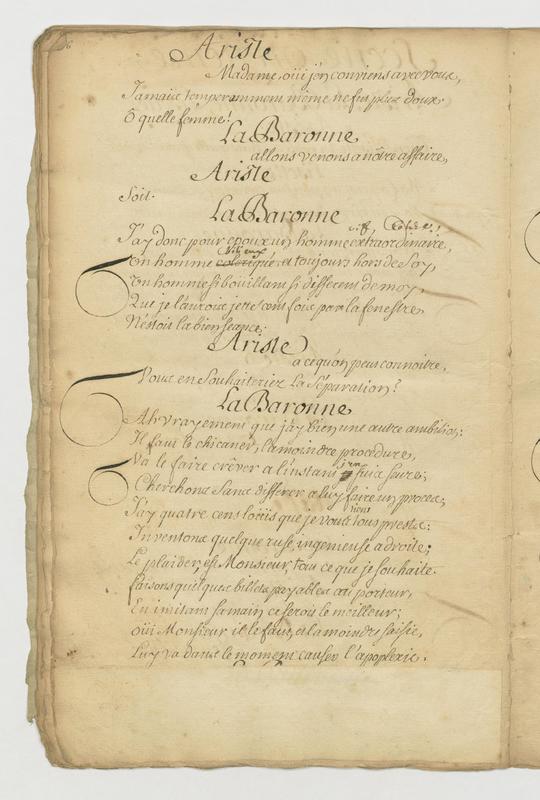 Ariste
Madame, oüi j'en conviens avec vous,
Jamais temperamment même ne fut plus doux.
O quelle femme!
La Baronne
allons venons a nôtre affaire,
Ariste
Soit.
La Baronne
vif, Colére,
J'ay donc pour epoux un homme extraordinaire,
Un homme colerique et toujours hors de Soy,
Un homme si boüillant si different de moy,
Que je l'aurois jetté cent fois par la fenestre
N'estoit la bien seance;
Ariste
a ce qu'on peut connoitre,
Vous en Souhaiteriez La Séparation?
La Baronne
Ah vrayement que j'ay bien une autre ambition;
Il faut le chicaner, la moindre procedure,
Va le faire crêver a l'instant j'en suis seure;
Cherchons Sans differer a luy faire un procez;
viens
J'ay quatre cens loüis que je vous tous prests:
Inventons quelque ruse ingenieuse adroite;
Le plaider, est Monsieur tout ce que je souhaite.
faisons quelques billets payables au porteur,
En imitant sa main ce seroit le meilleur;
oüi Monsieur il le faut, et la moindre saisie,
Luy va dans le moment causer l'apoplexie.